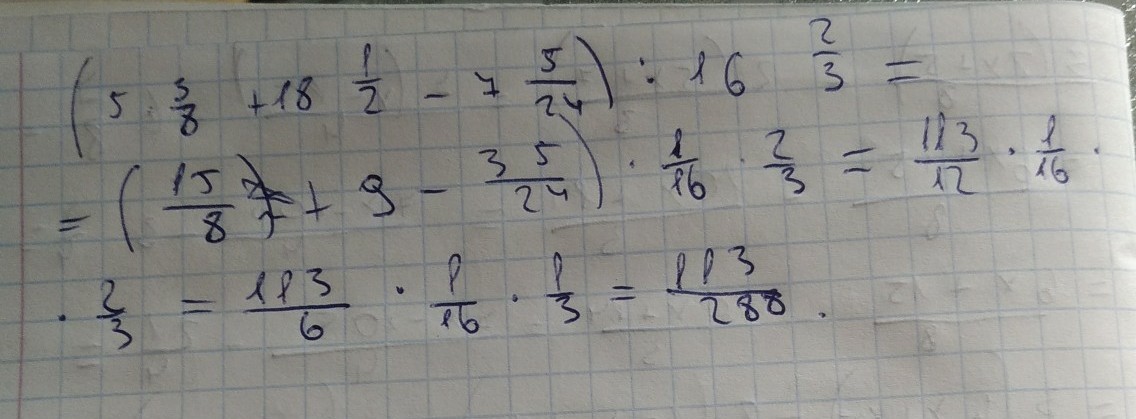 (5 3/8 + 18 1/2 - 7 5/24) : 16 2/3 =
= (15/8 + 9 - 35/24) · 1/16 · 2/3 = 113/12 · 1/16 ·
· 2/3 = 113/6 · 1/16 · 1/3 = 113/288.